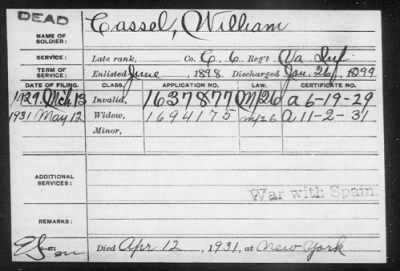 DEAD
Cassel, William
NAME OF SOLDIER:
SERVICE: Late rank, Co. C, 6 Reg't Va Inf.
TERM OF SERVICE: Enlisted June , 1898 Discharged Jan. 26, 1899
DATE OF FILING. CLASS. APPLICATION NO. LAW. CERTIFICATE NO.
1929. Mch 13 Invalid, 1637877 M/26 a 6-19-29
1931 May 12 Widow, 1694175 M/26 a 11-2-31
Minor,
ADDITIONAL SERVICES:
War with Spain
REMARKS:
Died Apr 12 , 1931, at New York